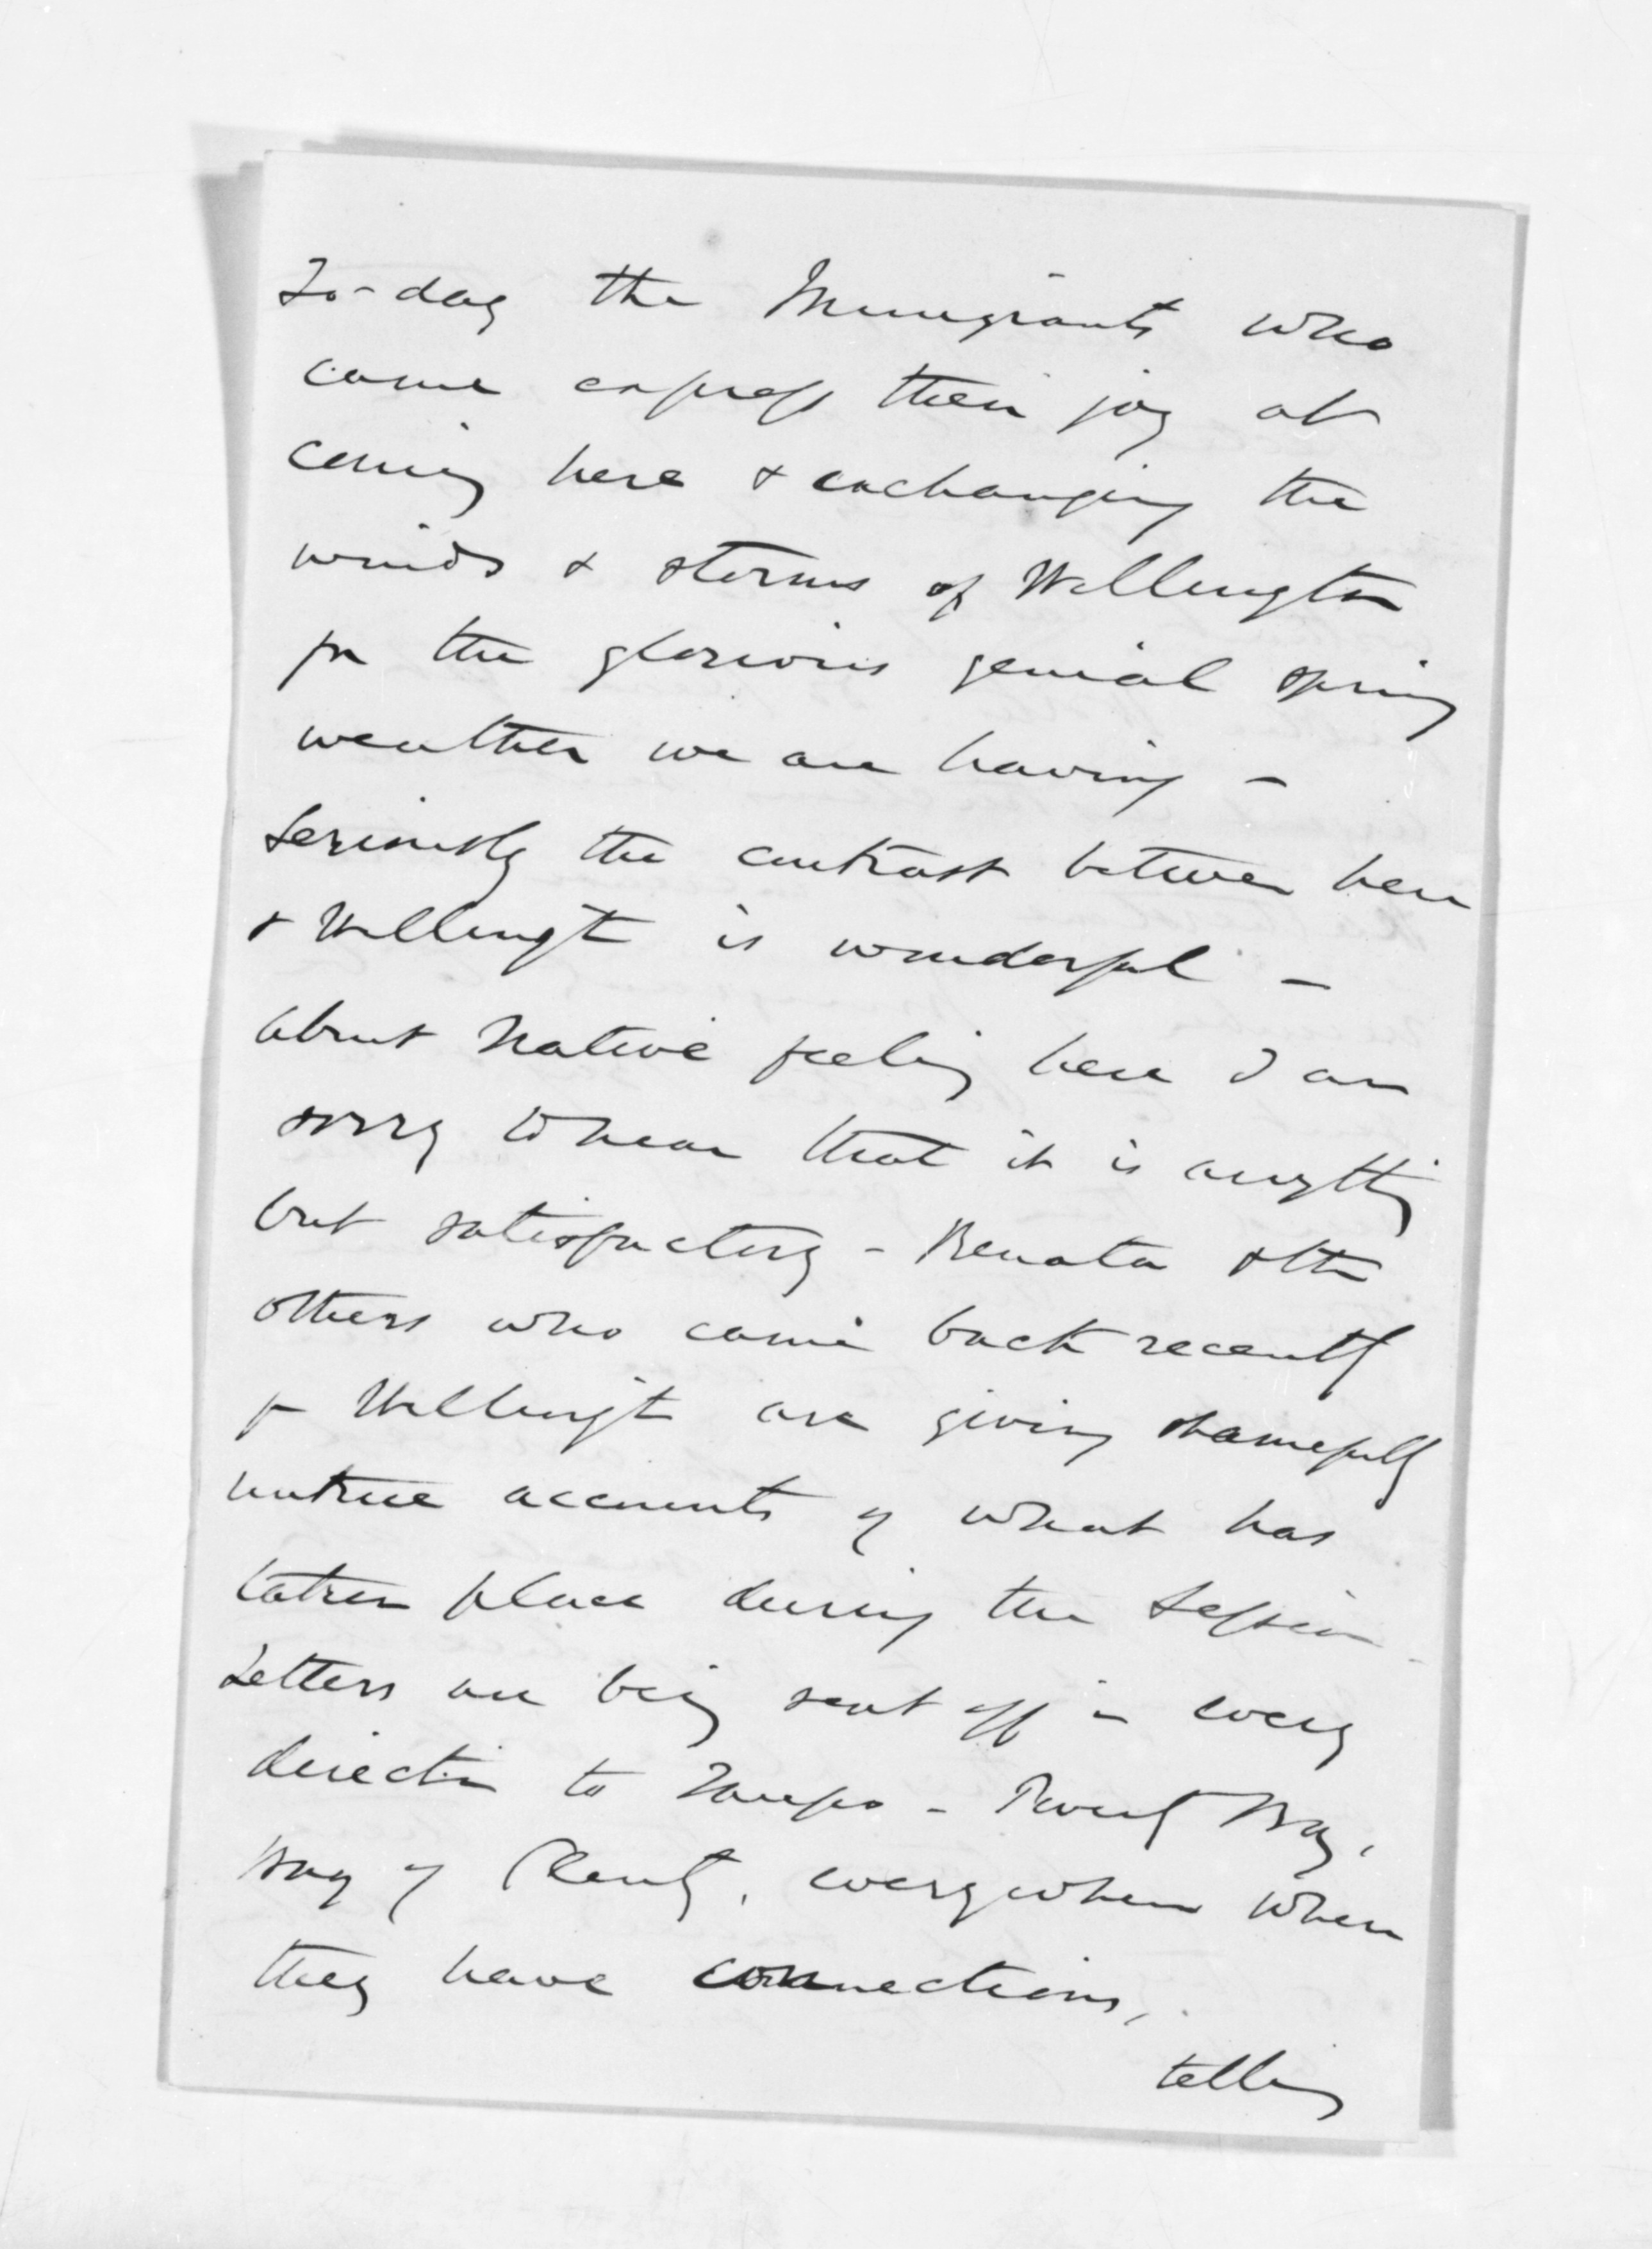 To-day the Immigrants who
came express their joy at
coming here & exchanging the
winds & storms of Wellington
for the glorious genial spring
weather we are having -
Seriously the contrast between here
& Wellingt is wonderful -
about Native feeling here I am
sorry to hear that it is anything
but satisfactory - Renata & the
others who came back recently
fr Wellingt are giving shamefully
untrue accounts of what has
taken place during the Session -
Letters are being sent off in every
direction to Taupo - Poverty Bay,
Bay of Plenty, everywhere where
they have connections,
telling